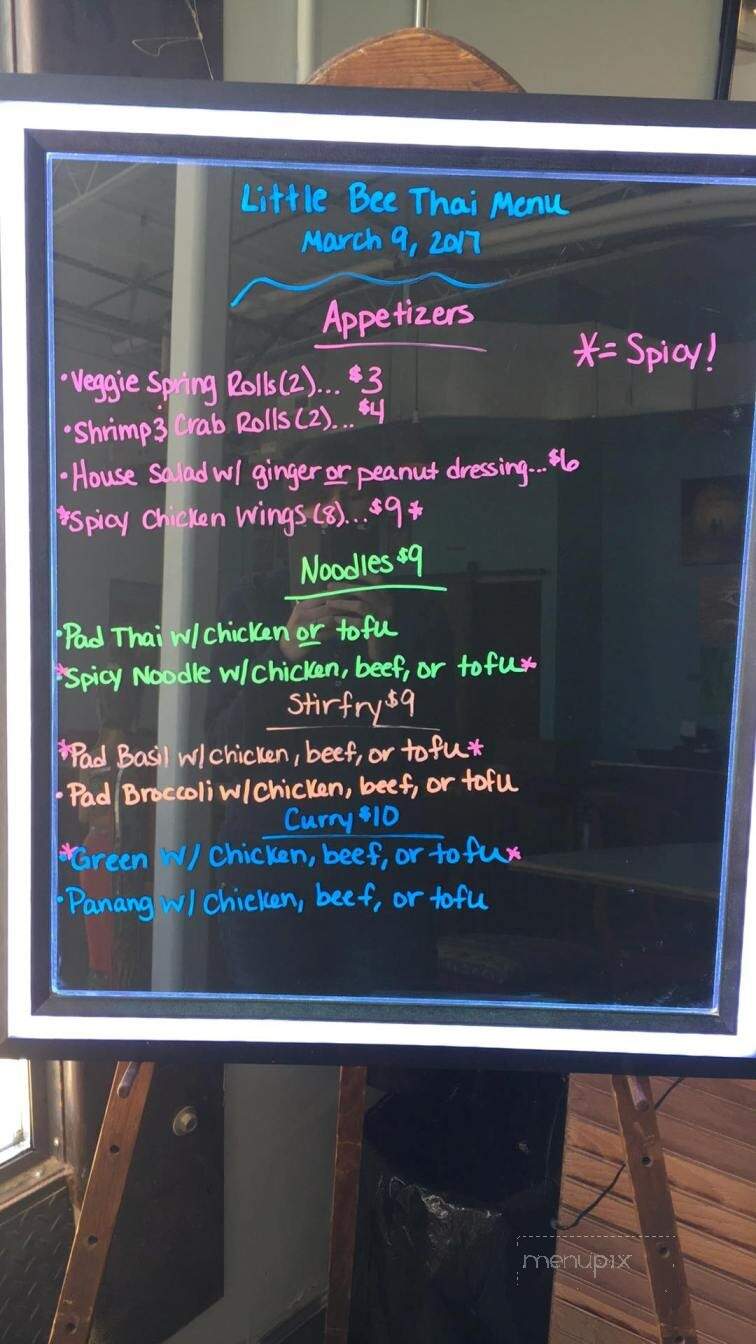 Little Bee Thai Menu
March 9, 2017
Appetizers
*= Spicy!
•Veggie Spring Rolls(2)... $3
•Shrimp & Crab Rolls (2)... $4
•House Salad w/ ginger or peanut dressing...$6
*Spicy Chicken Wings (8)...$9*
Noodles $9
•Pad Thai w/chicken or tofu
*Spicy Noodle w/chicken, beef, or tofu*
Stirfry $9
*Pad Basil w/chicken, beef, or tofu*
•Pad Broccoli w/chicken, beef, or tofu
Curry $10
*Green w/ chicken, beef, or tofu*
•Panang w/ chicken, beef, or tofu
menupix